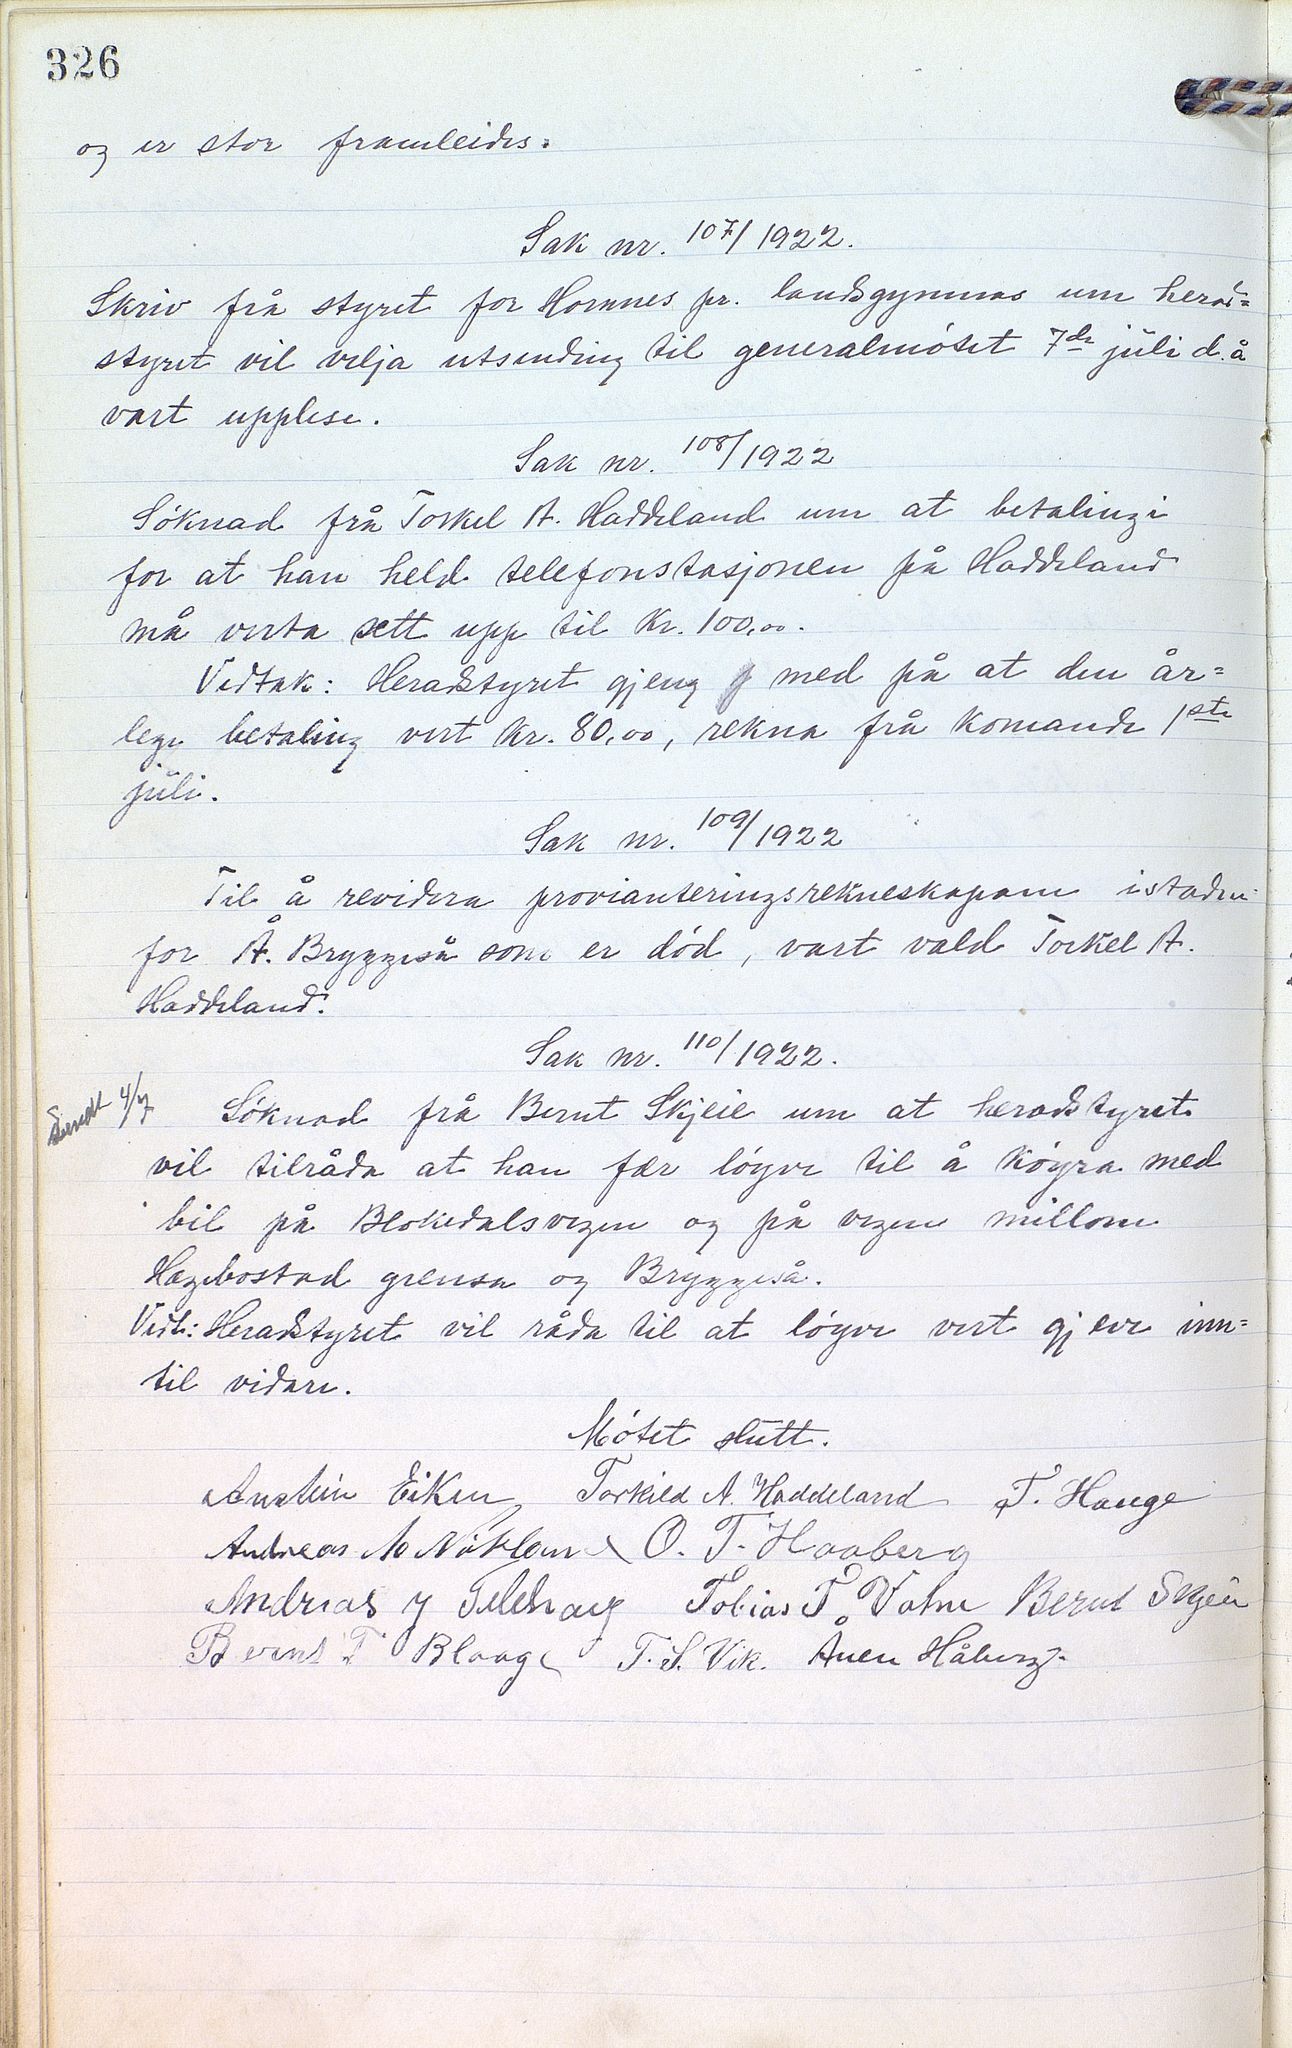 326
og er stor framleides.
Sak nr. 107/1922.
Skriv frå styret for Hornnes pr. landsgymnas um herad=
styret vil velja utsending til generalmøtet 7de juli d. å
vart upplese.
Sak nr. 108/1922
Søknad frå Torkel A. Haddeland um at betalingi
for at han held telefonstasjonen på Haddeland
må verta sett upp til Kr. 100,00.
Vedtak: Heradstyret gjeng med på at den år=
lege betaling vert Kr. 80,00, rekna frå komande 1ste
juli.
Sak nr. 109/1922
Til å revidera provianteringsrekneskapam istaden
for Å. Bryggeså som er død, vart vald Torkel A.
Haddeland.
Sak nr. 110/1922.
Sendt 4/7
Søknad frå Bernt Skjeie um at heradstyret
vil tilråda at han fær løyve til å køyra med
bil på Blokedalsvegen og på vegen millom
Hægebostad grensa og Bryggeså.
Vedt: Heradstyret vil råda til at løyve vert gjeve inn=
til vidare.
Møtet slutt.
Anstein Eiken Torkild A. Haddeland T. Hauge
Andreas O. T. Haaberg
Andreas Tobias T. Bernt Skjeie
Bernt T T. S. Vik. Ånen Håberg.